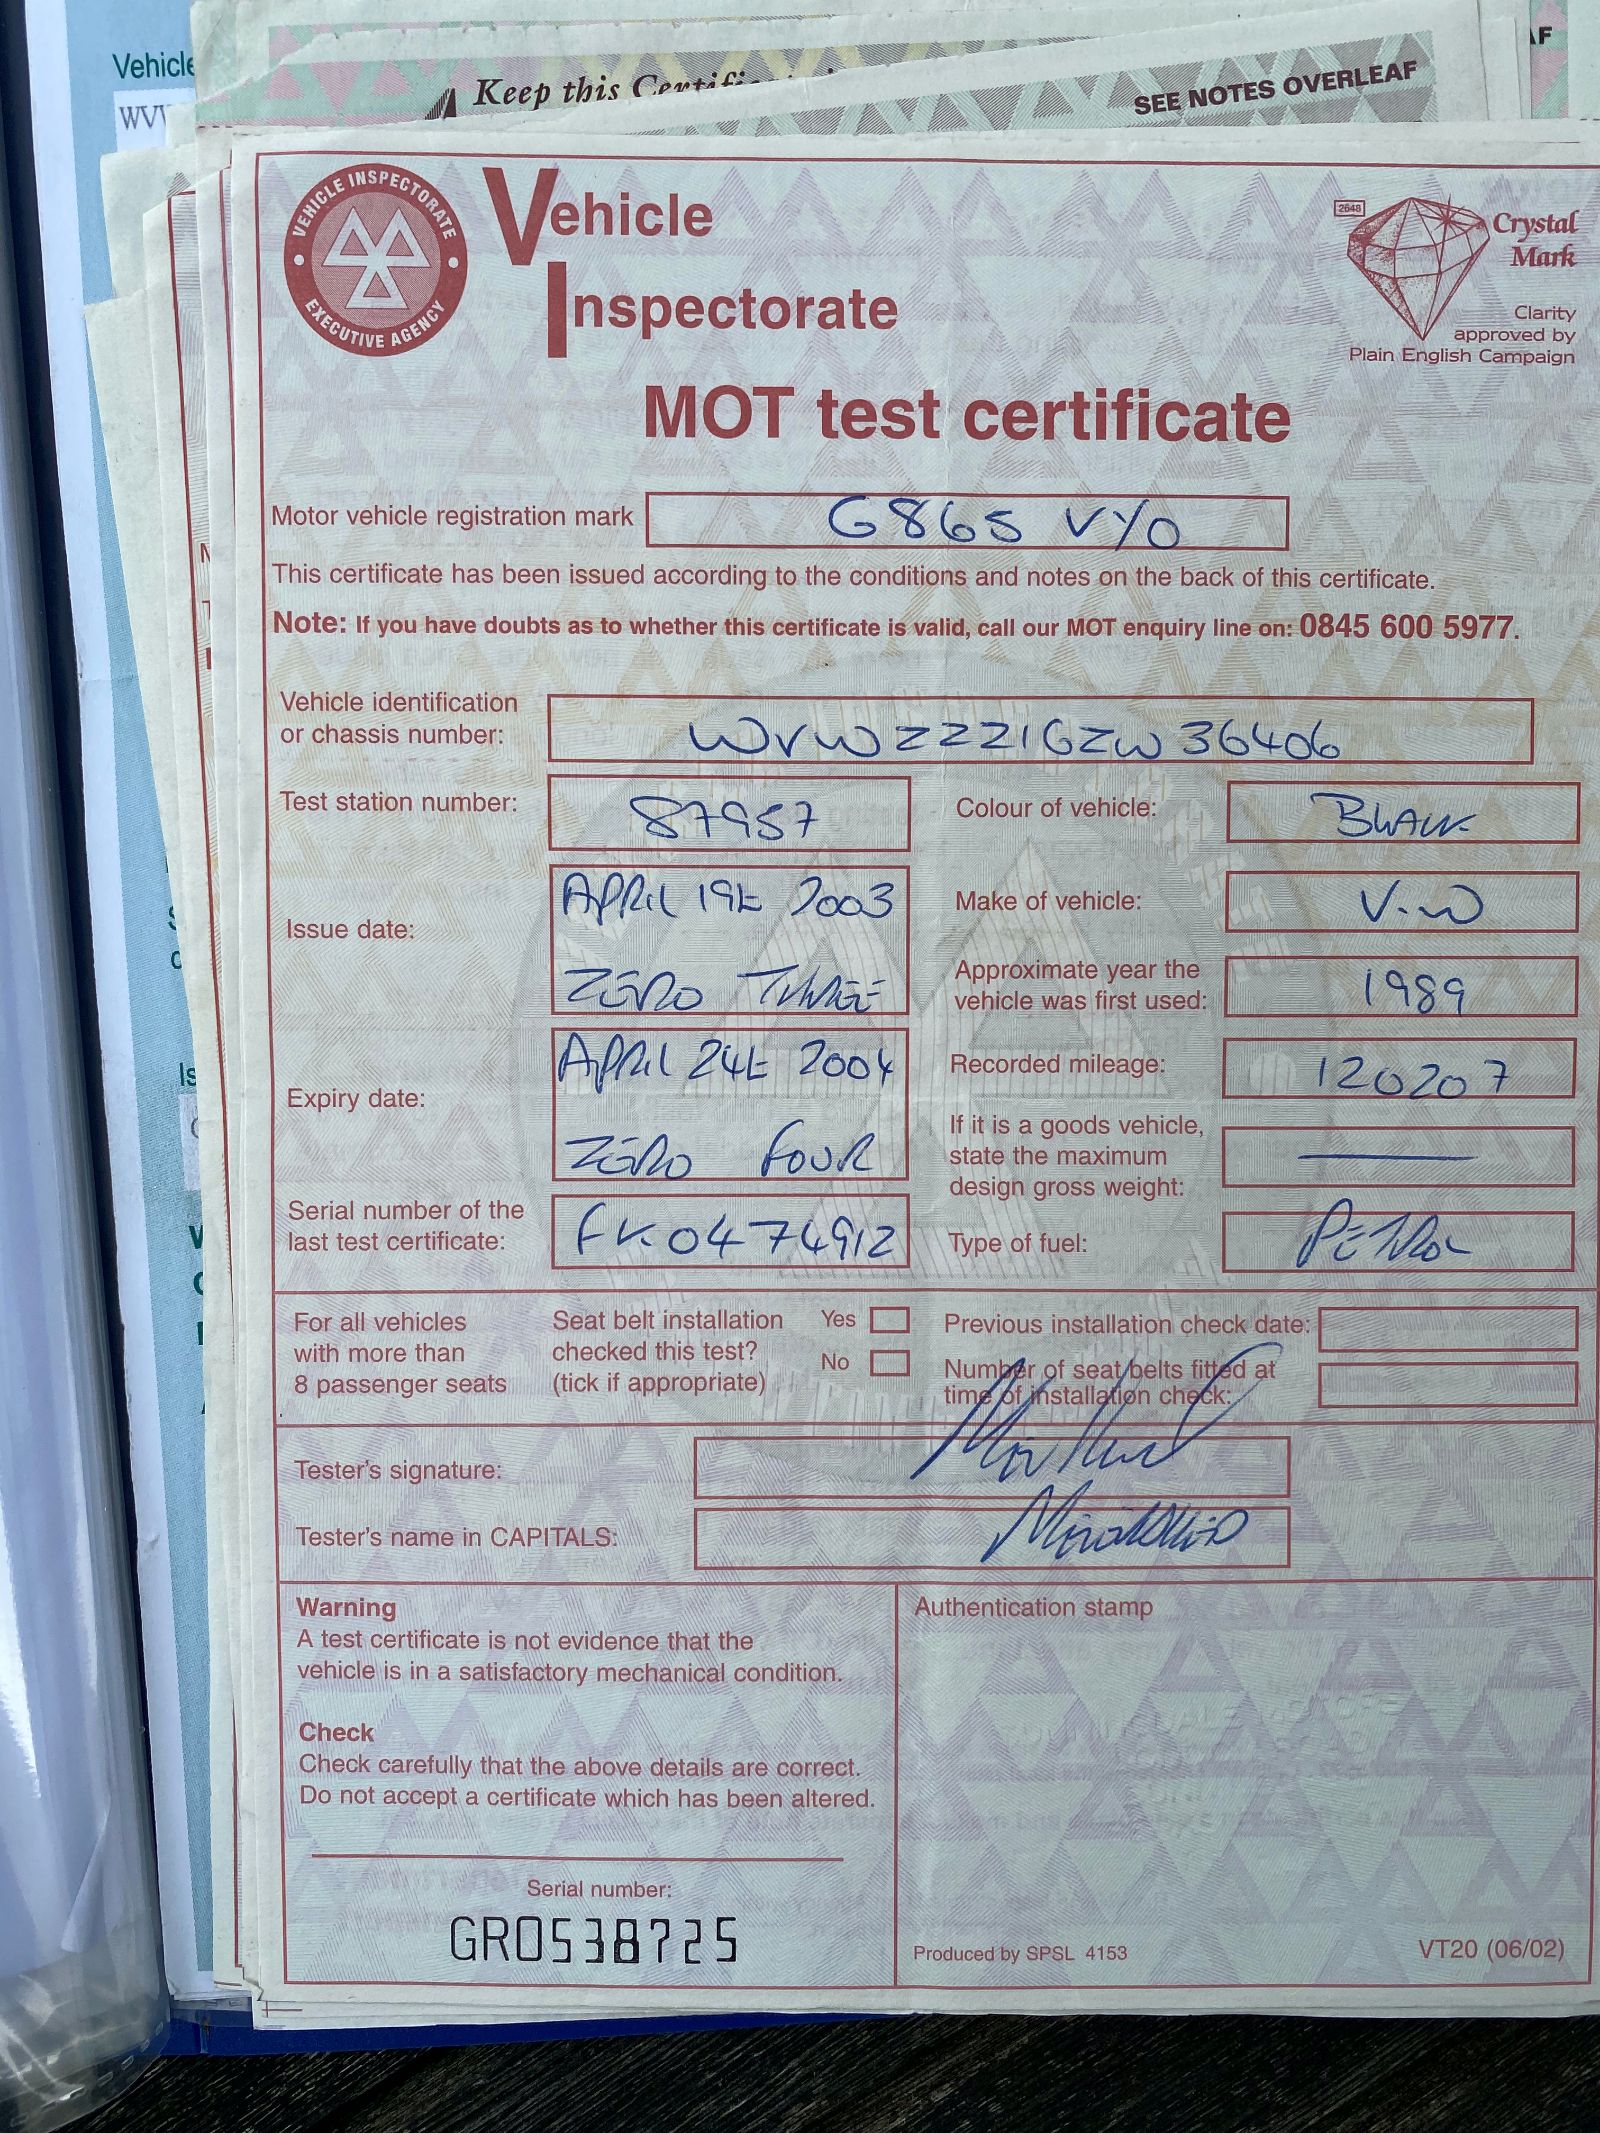 Vehicle
WVW
Keep this Certific
SEE NOTES OVERLEAF
AF
VEHICLE INSPECTORATE
EXECUTIVE AGENCY
Vehicle
Inspectorate
2648
Crystal
Mark
Clarity
approved by
Plain English Campaign
MOT test certificate
Motor vehicle registration mark G865 VYO
This certificate has been issued according to the conditions and notes on the back of this certificate.
Note: If you have doubts as to whether this certificate is valid, call our MOT enquiry line on: 0845 600 5977.
Vehicle identification
or chassis number: WVWZZZ1GZW36406
Test station number: 87957
Colour of vehicle: BLACK
Issue date: APRIL 19th 2003
ZERO THREE
Make of vehicle: V.W
Approximate year the
vehicle was first used: 1989
Expiry date: APRIL 24th 2004
ZERO FOUR
Recorded mileage: 120207
If it is a goods vehicle,
state the maximum
design gross weight:
Serial number of the
last test certificate: FK0474912
Type of fuel: PETROL
For all vehicles
with more than
8 passenger seats
Seat belt installation
checked this test?
(tick if appropriate)
Yes
No
Previous installation check date:
Number of seat belts fitted at
time of installation check:
Tester's signature:
Tester's name in CAPITALS:
Warning
A test certificate is not evidence that the
vehicle is in a satisfactory mechanical condition.
Check
Check carefully that the above details are correct.
Do not accept a certificate which has been altered.
Serial number:
GR0538725
Authentication stamp
Produced by SPSL 4153
VT20 (06/02)